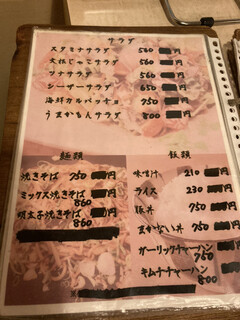 サラダ
スタミナサラダ 560 円
大根じゃこサラダ 560 円
ツナサラダ 560 円
シーザーサラダ 650 円
海鮮カルパッチョ 750 円
うまかもんサラダ 800 円
麺類
焼きそば 750 円
ミックス焼きそば 円
860
明太子焼きそば 円
860
飯類
味噌汁 210 円
ライス 230 円
豚丼 750 円
まかない丼 750 円
ガーリックチャーハン 円
750
キムチチャーハン 円
800